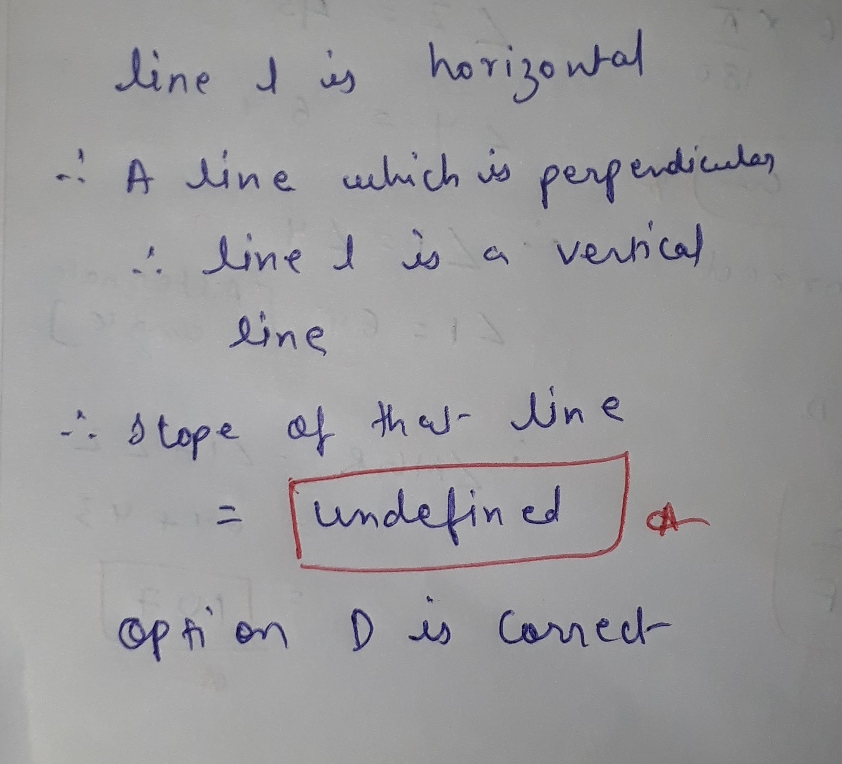 line l is horizontal
∴ A line which is perpendicular
∴ line l is a vertical
line
∴ slope of that line
= undefined
option D is correct